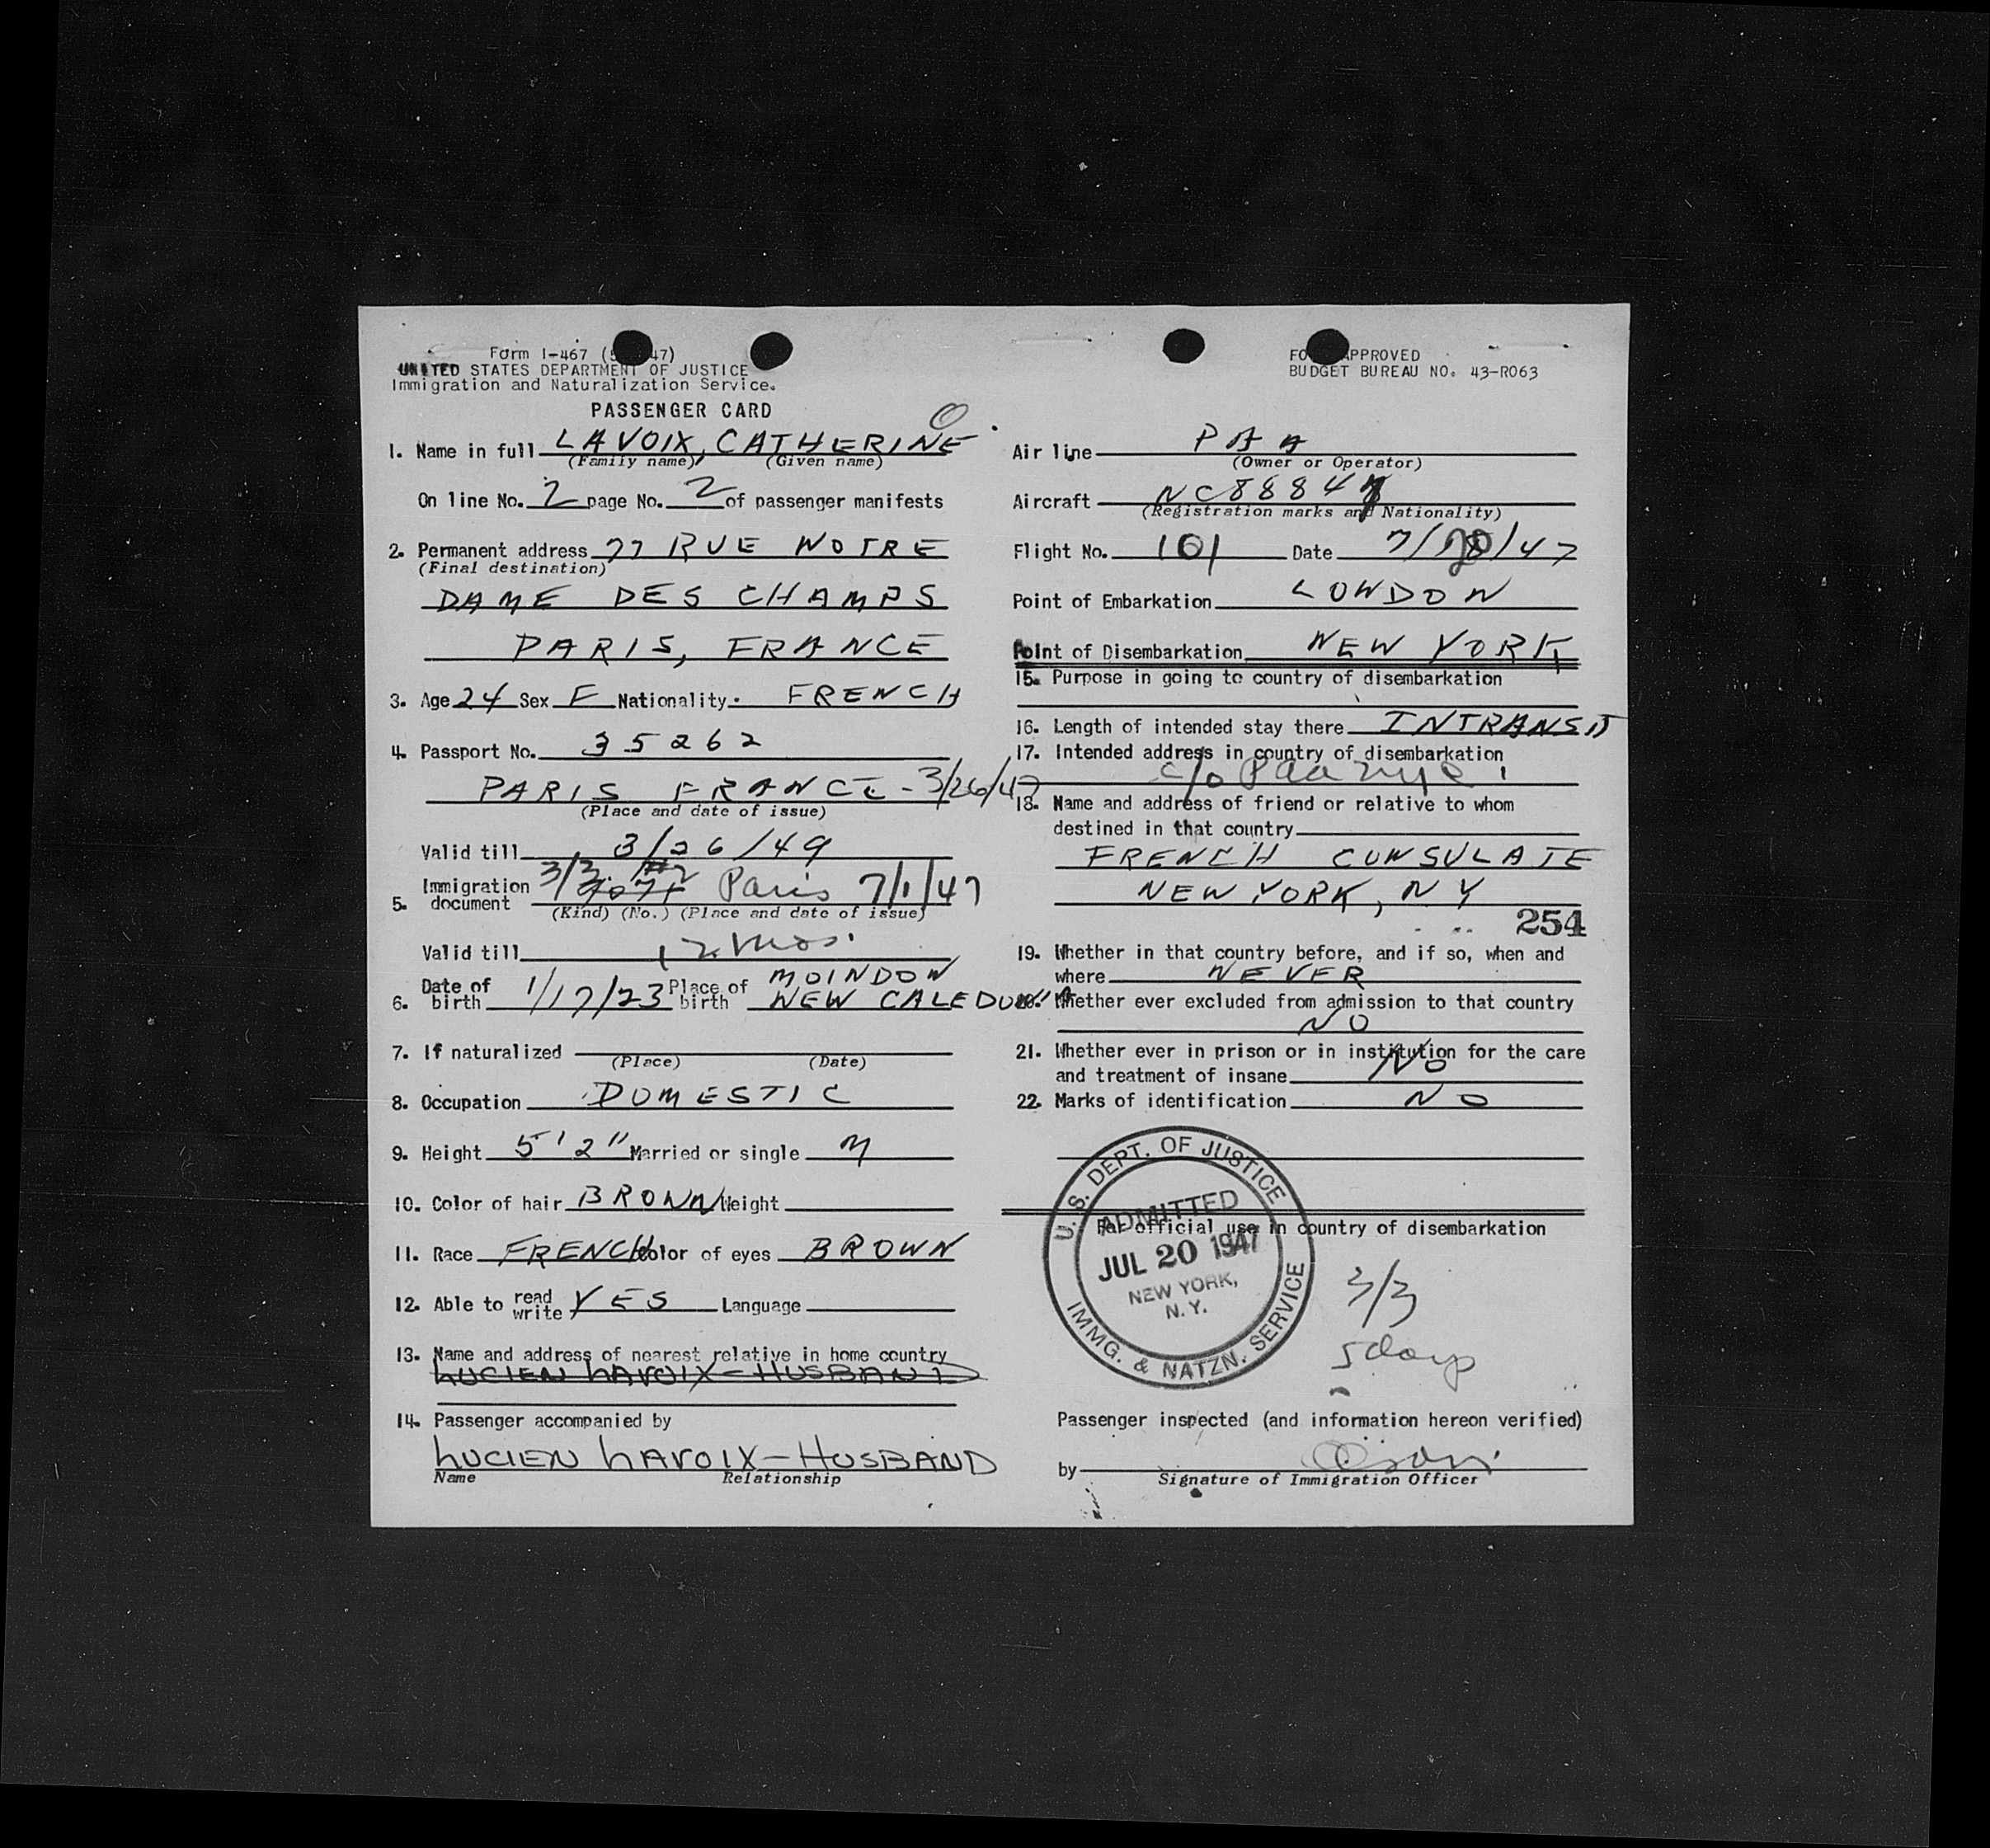 Form I-467 ( 47)
UNITED STATES DEPARTMENT OF JUSTICE
Immigration and Naturalization Service.
PASSENGER CARD
1. Name in full LAVOIX, CATHERINE
(Family name) (Given name)
On line No. 2 page No. 2 of passenger manifests
2. Permanent address 77 RUE NOTRE
(Final destination)
DAME DES CHAMPS
PARIS, FRANCE
3. Age 24 Sex F Nationality. FRENCH
4. Passport No. 35262
PARIS FRANCE - 3/26/47
(Place and date of issue)
Valid till 3/26/49
5. Immigration document 3/3. #2 Paris 7/1/47
(Kind) (No.) (Place and date of issue)
Valid till 12 mos.
6. Date of birth 1/17/23 Place of birth MOINDOW NEW CALEDONIA
7. If naturalized
(Place) (Date)
8. Occupation DOMESTIC
9. Height 5' 2" Married or single M
10. Color of hair BROWN Weight
11. Race FRENCH Color of eyes BROWN
12. Able to read write YES Language
13. Name and address of nearest relative in home country
LUCIEN LAVOIX - HUSBAND
14. Passenger accompanied by
LUCIEN LAVOIX - HUSBAND
Name Relationship
FO APPROVED
BUDGET BUREAU NO. 43-R063
Air line PAA
(Owner or Operator)
Aircraft NC8884
(Registration marks and Nationality)
Flight No. 101 Date 7/ /47
Point of Embarkation LONDON
Point of Disembarkation NEW YORK
15. Purpose in going to country of disembarkation
16. Length of intended stay there INTRANSIT
17. Intended address in country of disembarkation
c/o Paa nyc
18. Name and address of friend or relative to whom
destined in that country
FRENCH CONSULATE
NEW YORK, NY
254
19. Whether in that country before, and if so, when and
where NEVER
20. Whether ever excluded from admission to that country
NO
21. Whether ever in prison or in institution for the care
and treatment of insane NO
22. Marks of identification NO
For official use in country of disembarkation
U. S. DEPT. OF JUSTICE
ADMITTED
JUL 20 1947
NEW YORK,
N. Y.
IMMG. & NATZN. SERVICE
3/3
5 days
Passenger inspected (and information hereon verified)
by
Signature of Immigration Officer